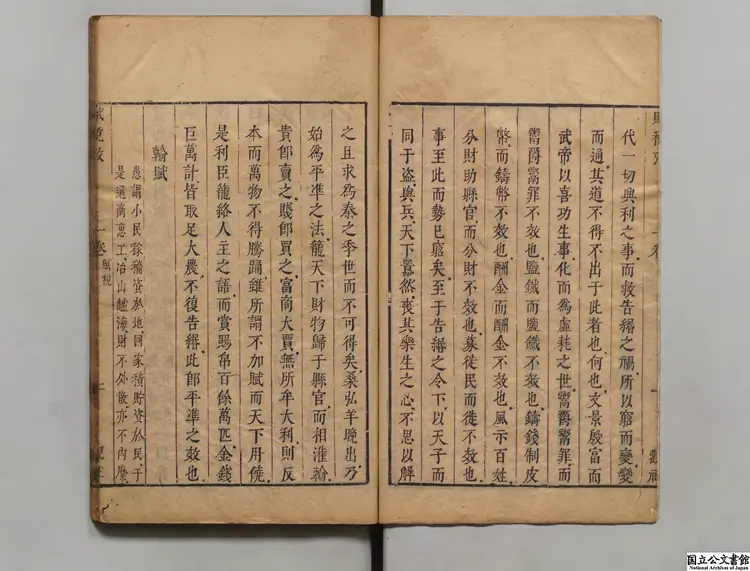 代一切興利之事而救告緡之禍所以窮而變變
而通其道不得不出于此者也何也文景殷富而
武帝以喜功生事化而爲虛耗之世鬻爵鬻罪而
鬻爵鬻罪不效也鹽鐵而鹽鐵不效也鑄錢制皮
幣而鑄幣不效也酬金而酬金不效也風示百姓
分財助縣官而分財不效也募徙民而徙不效也
事至此而勢已窮矣至于告緡之令下以天子而
同于盗與兵天下囂然喪其樂生之心不思以解
之且求爲秦之季世而不可得矣桑弘羊晚出乃
始爲平準之法籠天下財物歸于縣官而相灌輸
貴即賣之賤即買之富商大賈無所牟大利則反
本而萬物不得騰踊雖所謂不加賦而天下用饒
是利臣籠絡人主之語而賞賜帛百餘萬匹金錢
巨萬計皆取足大農不復告緡此即平準之效也
輸賦
愚謂小民稼穡資於地國家積貯資於民于
是通商惠工冶山鹽海財不外散亦不内縻
一卷 賦稅
国立公文書館
National Archives of Japan